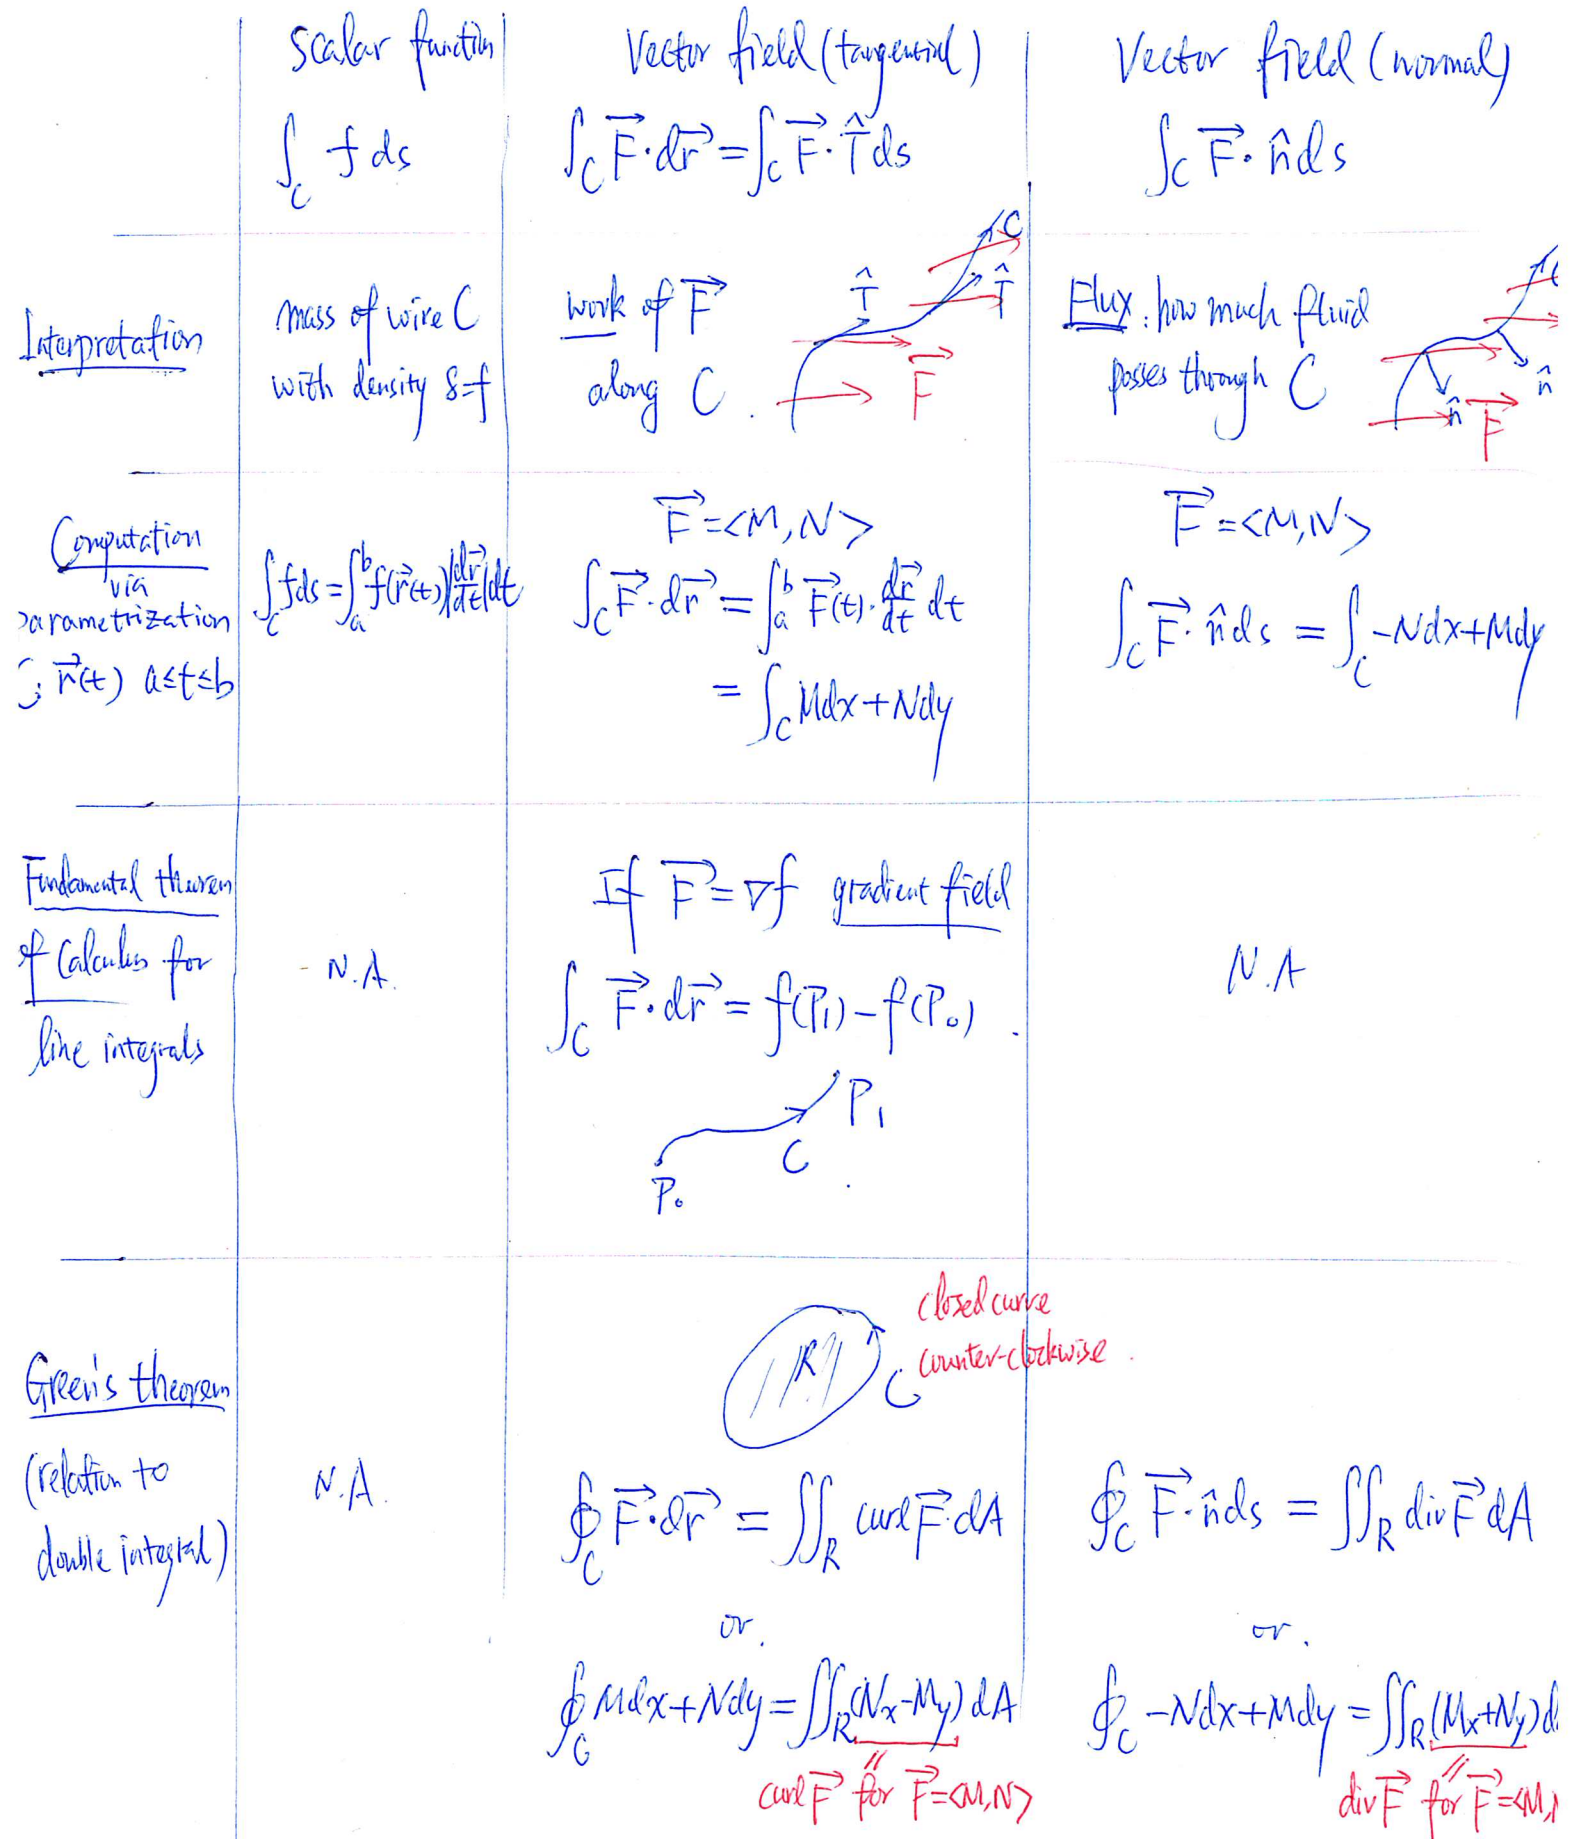 Scalar function
Vector field (tangential)
Vector field (normal)
∫_C f ds
∫_C F⃗·dr⃗ = ∫_C F⃗·T̂ ds
∫_C F⃗·n̂ ds
Interpretation
mass of wire C
with density δ=f
work of F⃗
along C.
T̂
T̂
C
F⃗
Flux: how much fluid
passes through C
n̂
n̂
F⃗
Computation
via
parametrization
C: r⃗(t) a≤t≤b
∫_C f ds = ∫_a^b f(r⃗(t)) |dr⃗/dt| dt
F⃗ = <M, N>
∫_C F⃗·dr⃗ = ∫_a^b F⃗(t)·dr⃗/dt dt
= ∫_C Mdx+Ndy
F⃗ = <M, N>
∫_C F⃗·n̂ ds = ∫_C -Ndx+Mdy
Fundamental theorem
of Calculus for
line integrals
N.A.
If F⃗ = ∇f gradient field
∫_C F⃗·dr⃗ = f(P₁) - f(P₀).
P₁
C
P₀
N.A
Green's theorem
(relation to
double integral)
N.A.
R
C
closed curve
counter-clockwise.
∮_C F⃗·dr⃗ = ∬_R curl F⃗ dA
or.
∮_C Mdx+Ndy = ∬_R (Nx-My) dA
curl F⃗ for F⃗=<M,N>
∮_C F⃗·n̂ ds = ∬_R div F⃗ dA
or.
∮_C -Ndx+Mdy = ∬_R (Mx+Ny) d
div F⃗ for F⃗=<M,